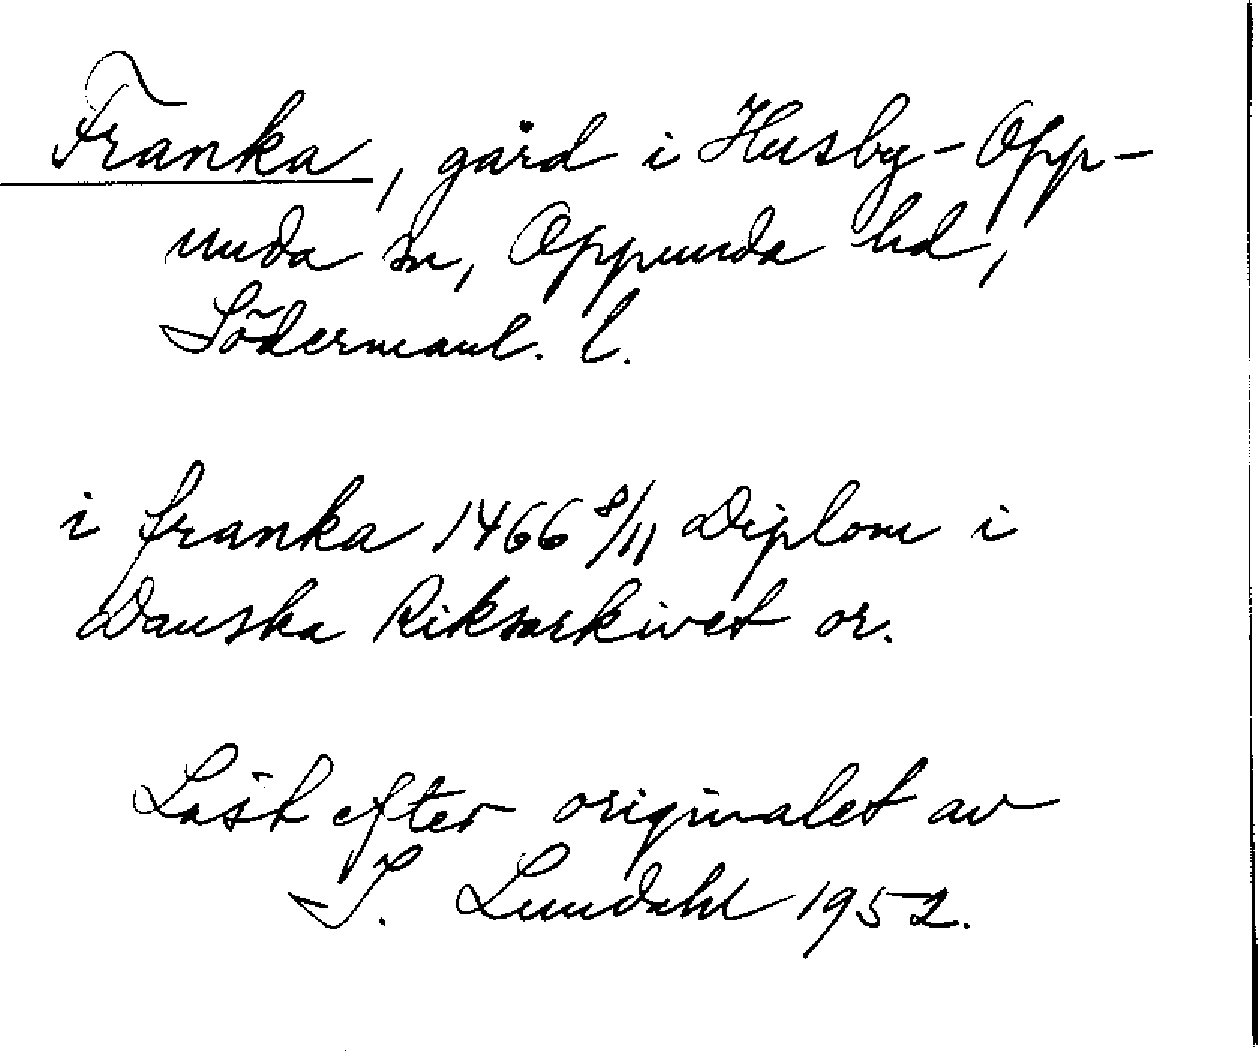 Franka, gård i Husby-Opp-
unda sn, Oppunda hd,
Södermanl. l.
i franka 1466 8/11 Diplom i
Danska Riksarkivet or.
Läst efter originalet av
I. Lundahl 1952.